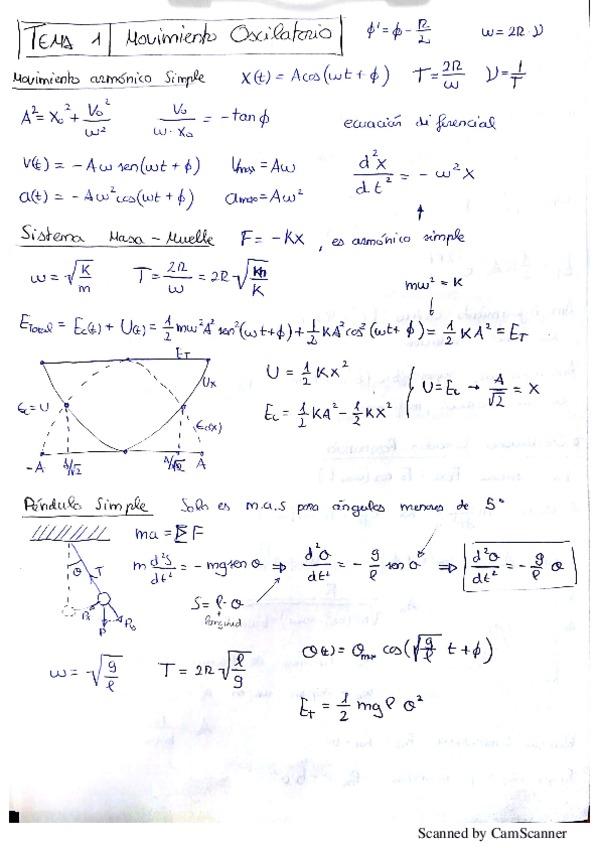 TEMA 1 | Movimiento Oscilatorio    φ' = φ - π/2    ω = 2π·ν
Movimiento armónico simple    X(t) = A cos(ωt + φ)    T = 2π/ω    ν = 1/T
A² = X₀² + V₀²/ω²    V₀/(ω·X₀) = -tan φ    ecuación diferencial
V(t) = -Aω sen(ωt + φ)    Vmax = Aω    d²x/dt² = -ω²x
a(t) = -Aω² cos(ωt + φ)    amax = Aω²    ↑
Sistema Masa - Muelle    F = -Kx, es armónico simple
ω = √(K/m)    T = 2π/ω = 2π√(m/K)    mω² = K
↓
ETotal = Ec(t) + U(t) = 1/2 mω²A² sen²(ωt+φ) + 1/2 KA² cos²(ωt+φ) = 1/2 KA² = ET
ET
Ux
U = 1/2 Kx²
U = Ec → A/√2 = x
Ec = U
Ec = 1/2 KA² - 1/2 Kx²
Ec(x)
-A    A/√2    A/√2    A
Péndulo Simple    Solo es m.a.s para ángulos menores de 5°
ma = ΣF
θ    T
m d²S/dt² = -mg sen θ ⇒ d²θ/dt² = -g/ℓ sen θ ⇒ d²θ/dt² = -g/ℓ θ
S = ℓ·θ
longitud
P
ω = √(g/ℓ)    T = 2π√(ℓ/g)    θ(t) = θmax cos(√(g/ℓ) t + φ)
ET = 1/2 mgℓ θ²
Scanned by CamScanner